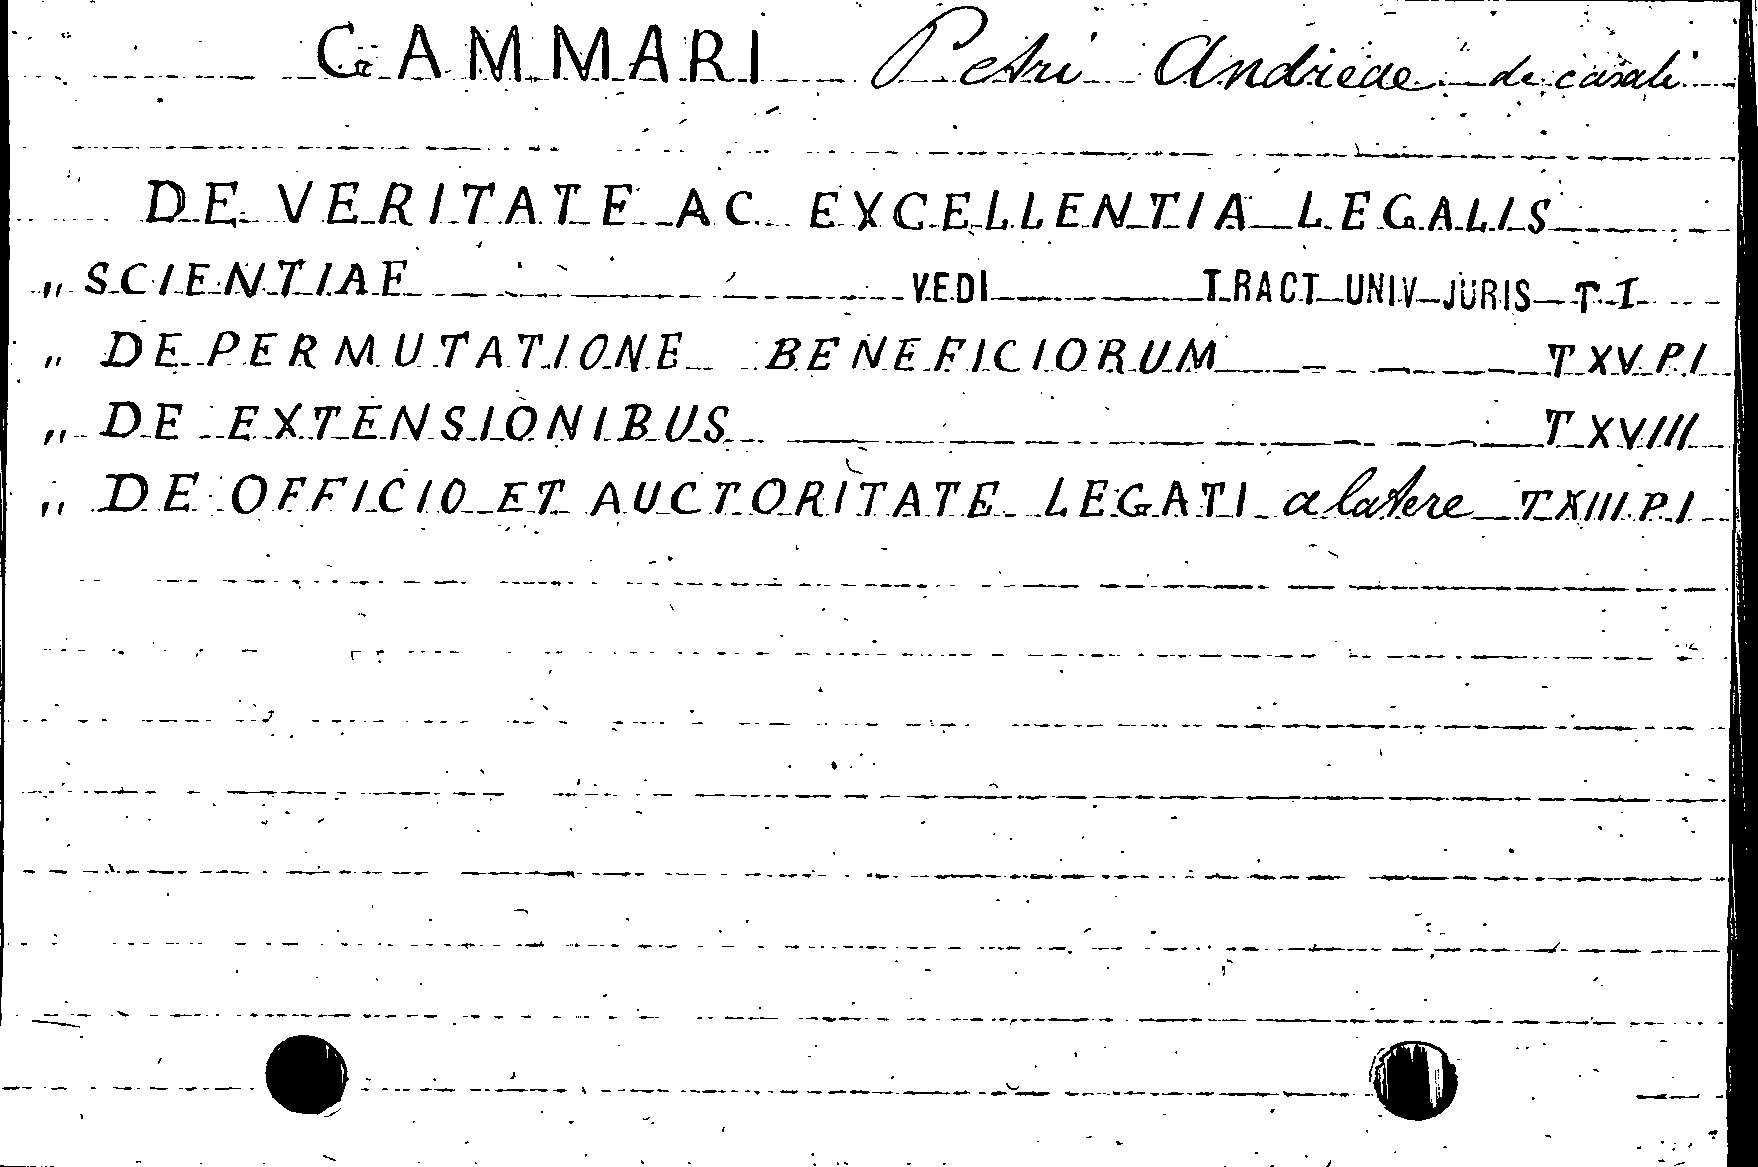 GAMMARI Petri Andreae de casali
DE VERITATE AC EXCELLENTIA LEGALIS
„ SCIENTIAE VEDI TRACT UNIV JURIS T I
„ DE PERMUTATIONE BENEFICIORUM T XV P I
„ DE EXTENSIONIBUS T XVIII
„ DE OFFICIO ET AUCTORITATE LEGATI a latere T XIII P I